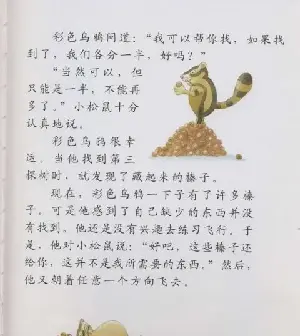 彩色乌鸦问道：“我可以帮你找，如果找
到了，我们各分一半，好吗？”
“当然可以，但
只能是一半，不能再
多了。”小松鼠十分
认真地说。
彩色乌鸦很幸
运，当他找到第三
棵树时，就发现了藏起来的榛子。
现在，彩色乌鸦一下子有了许多榛
子。可是他感到了自己缺少的东西并没
有找到。他还是没有兴趣去练习飞行。于
是，他对小松鼠说：“好吧，这些榛子还
给你，这并不是我所需要的东西。”然后，
他又朝着任意一个方向飞去。